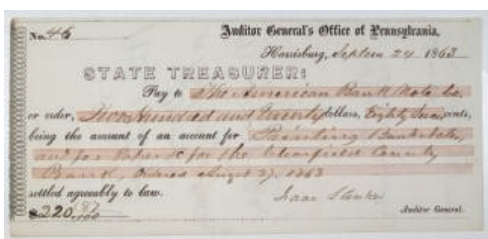 No. 46
Auditor General's Office of Pennsylvania,
Harrisburg, Septem 24 1863
STATE TREASURER:
Pay to The American Bank Note Co.
or order, Two Hundred and twenty dollars, Eighty cents,
being the amount of an account for Printing Bank
and for Paper &c for the Clearfield County
Bank, Ordered August 27. 1863
settled agreeably to law.
Isaac Slenker
$220
100
Auditor General.